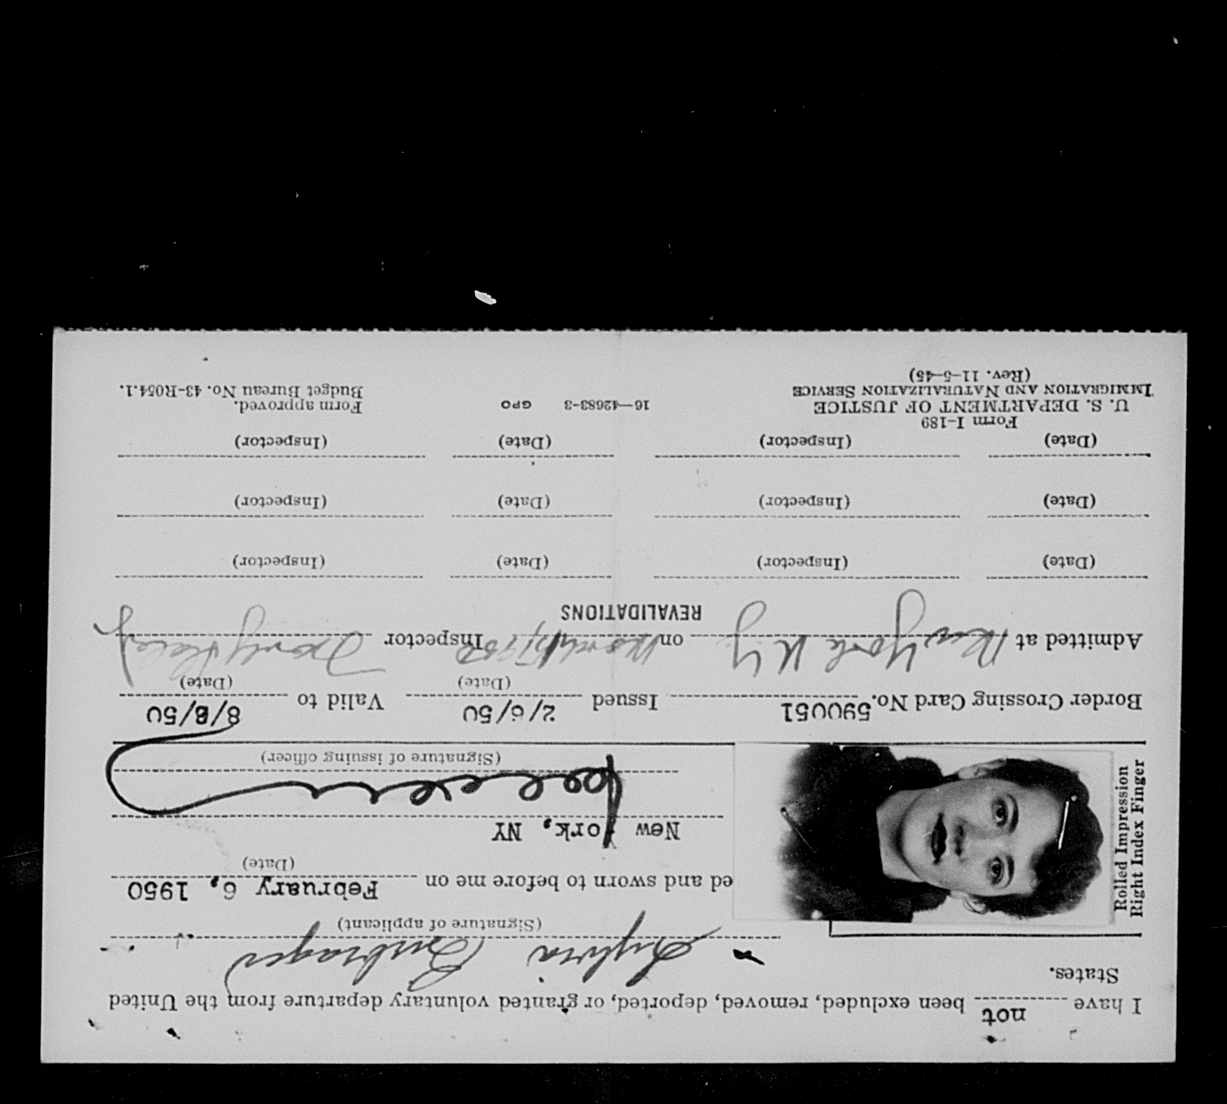 I have not been excluded, removed, deported, or granted voluntary departure from the United
States.
Sylvia
(Signature of applicant)
Rolled Impression
Right Index Finger
ed and sworn to before me on February 6, 1950
(Date)
New York, NY
(Signature of issuing officer)
Border Crossing Card No. 590051 Issued 2/6/50 Valid to 8/8/50
(Date) (Date)
Admitted at New York N Y on Inspector
REVALIDATIONS
(Date) (Inspector) (Date) (Inspector)
(Date) (Inspector) (Date) (Inspector)
(Date) (Inspector) (Date) (Inspector)
Form I-189
U. S. DEPARTMENT OF JUSTICE
IMMIGRATION AND NATURALIZATION SERVICE
(Rev. 11-5-45)
16—42683-3 GPO
Form approved.
Budget Bureau No. 43-R054.1.